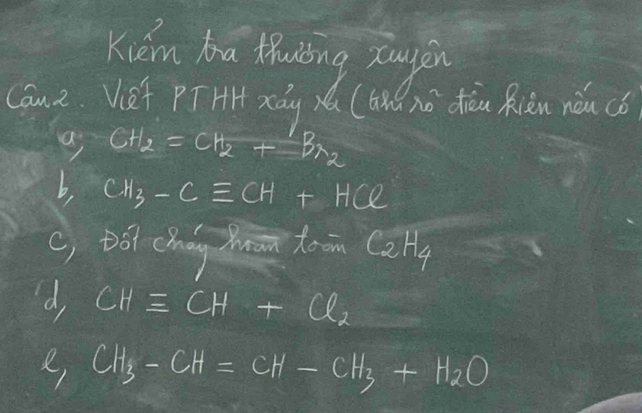 Kiểm tra thường xuyên
Câu 2. Viết PTHH xảy ra (Ghi rõ điều kiện nếu có)
a, CH₂ = CH₂ + Br₂
b, CH₃ - C ≡ CH + HCl
c, Đốt cháy hoàn toàn C₂H₄
d, CH ≡ CH + Cl₂
e, CH₃ - CH = CH - CH₃ + H₂O